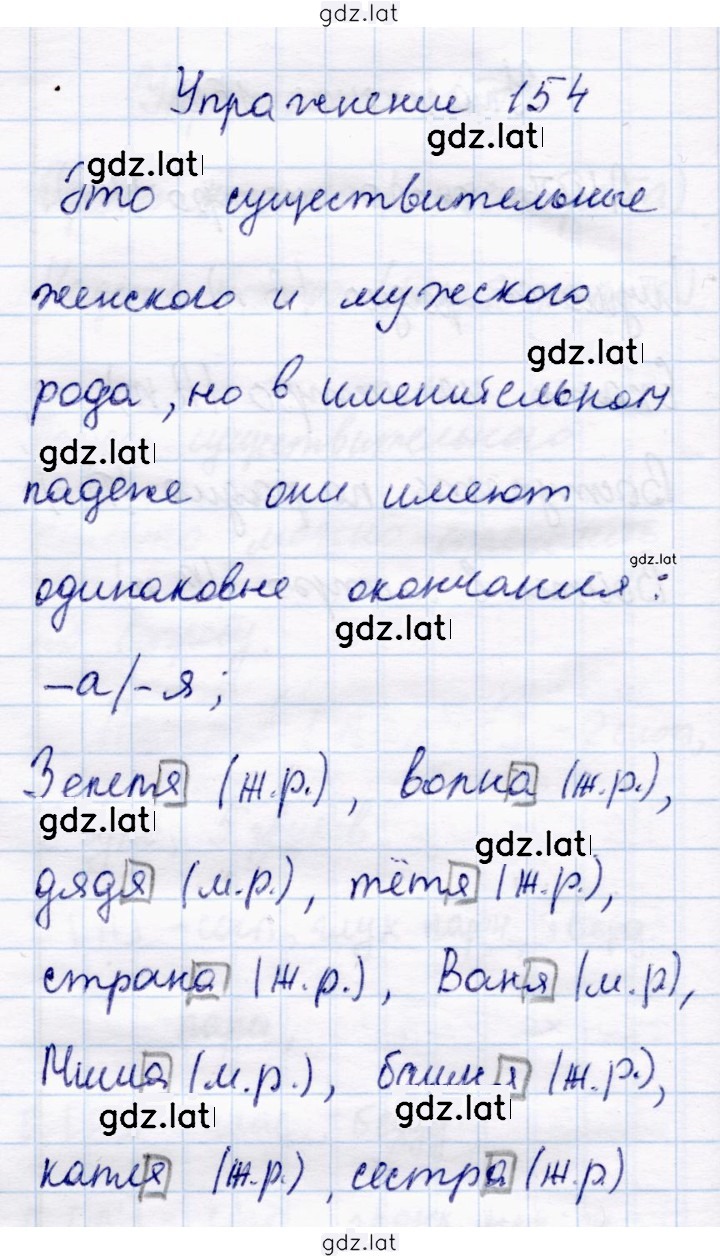 gdz.lat
Упражнение 154
gdz.lat
gdz.lat
Это существительные
женского и мужского
gdz.lat
рода, но в именительном
gdz.lat
падеже они имеют
gdz.lat
одинаковые окончания:
gdz.lat
-а/-я;
Земля (ж.р.), волна (ж.р.),
gdz.lat
gdz.lat
дядя (м.р.), тётя (ж.р.),
страна (ж.р.), Ваня (м.р),
Миша (м.р.), башня (ж.р.),
gdz.lat
gdz.lat
капля (ж.р.), сестра (ж.р)
gdz.lat